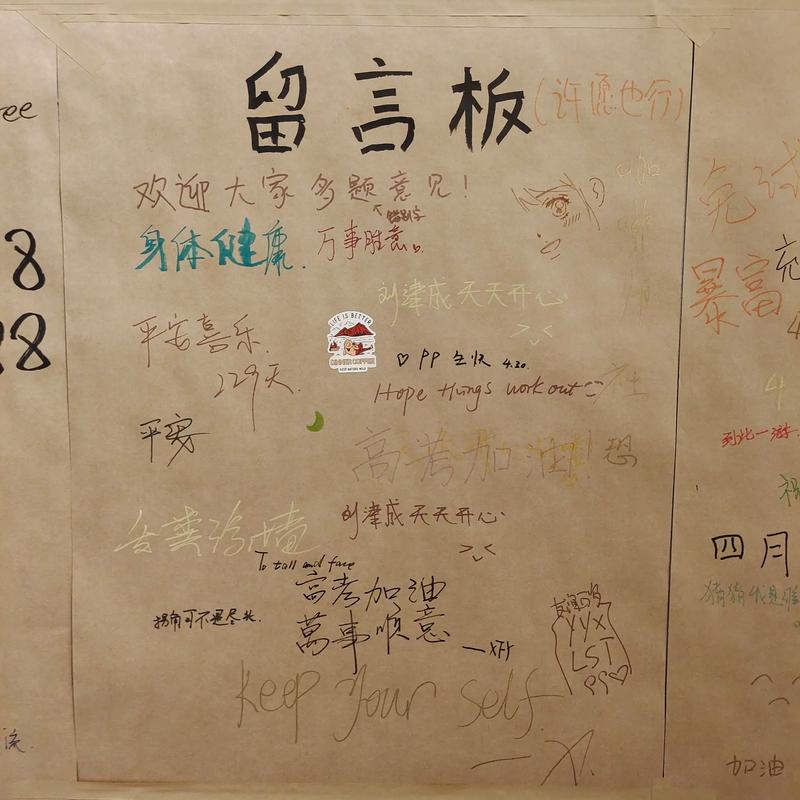 留言板(许愿也行)
欢迎大家多题意见!
错别字
身体健康.
万事胜意。
刘津成天天开心
平安喜乐.
229天.
LIFE IS BETTER
KEEP NATURE WILD
♡ PP 4.30.
Hope things work out
平安
高考加油!
恐
刘津成天天开心
>◡<
To tall and face
高考加油
萬事順意
—XFY
拐角可不是尽头.
YYX
LST
Keep Your self.
—X.
ee
8
28
流.
免试
暴富
4
到此一游.
四月
加油